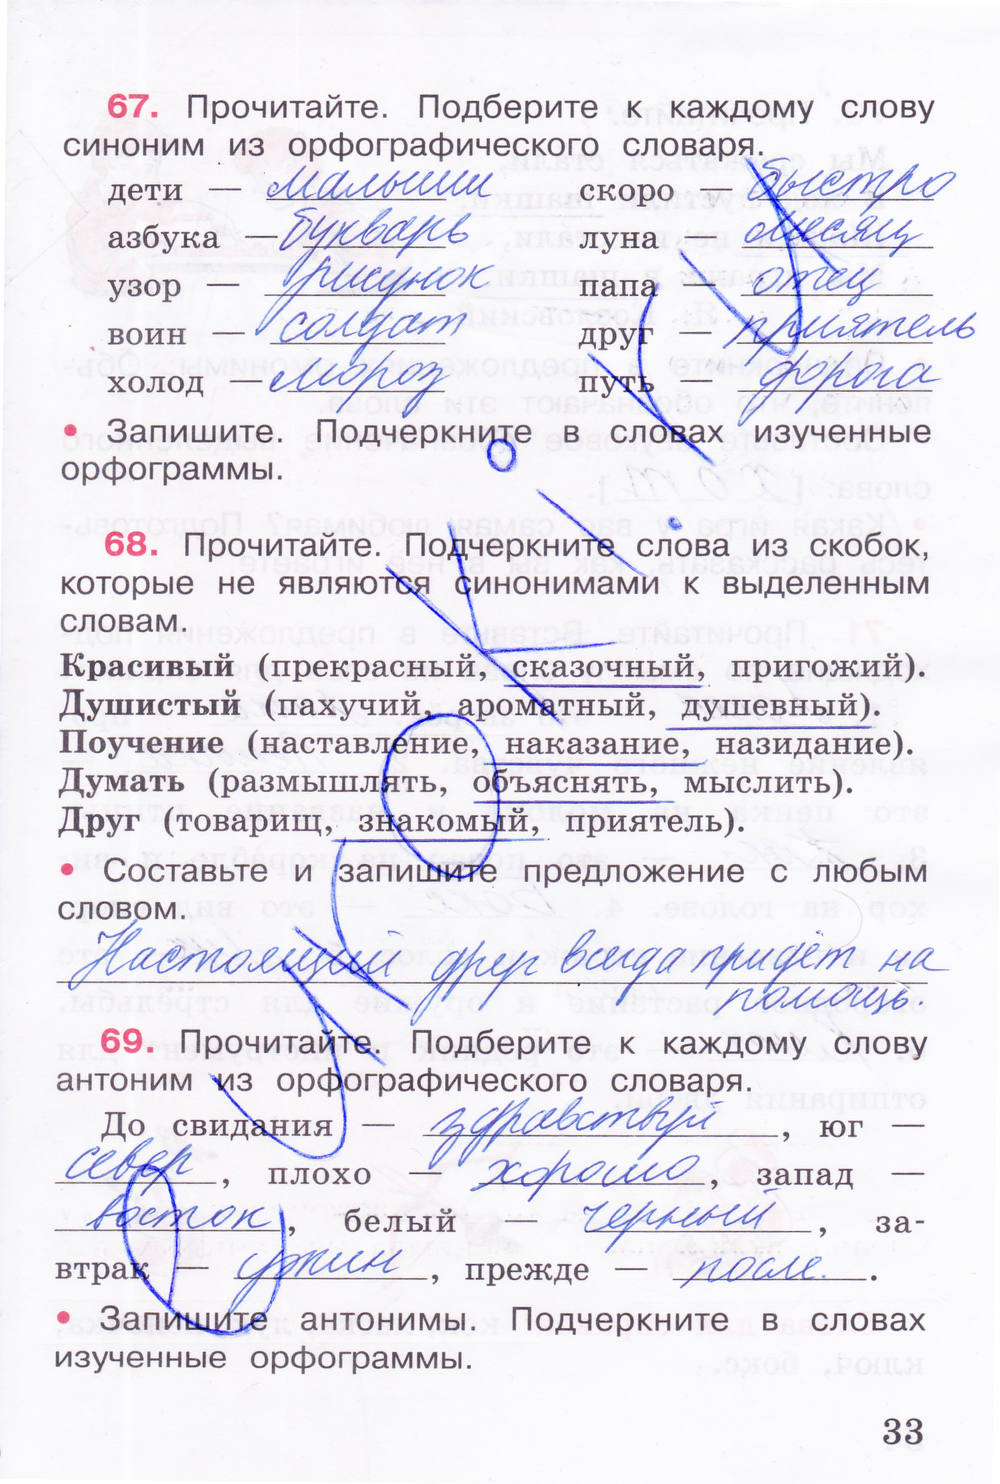 67. Прочитайте. Подберите к каждому слову
синоним из орфографического словаря.
дети — малыши скоро — быстро
азбука — букварь луна месяц
узор — рисунок папа — отец
воин — солдат друг — приятель
холод — мороз путь — дорога
• Запишите. Подчеркните в словах изученные
орфограммы.
68. Прочитайте. Подчеркните слова из скобок,
которые не являются синонимами к выделенным
словам.
Красивый (прекрасный, сказочный, пригожий).
Душистый (пахучий, ароматный, душевный).
Поучение (наставление, наказание, назидание).
Думать (размышлять, объяснять, мыслить).
Друг (товарищ, знакомый, приятель).
• Составьте и запишите предложение с любым
словом.
Настоящий друг всегда придёт на
помощь.
69. Прочитайте. Подберите к каждому слову
антоним из орфографического словаря.
До свидания — здравствуй, юг —
север, плохо — хорошо, запад —
восток, белый — черный, за-
втрак — ужин, прежде — после.
• Запишите антонимы. Подчеркните в словах
изученные орфограммы.
33